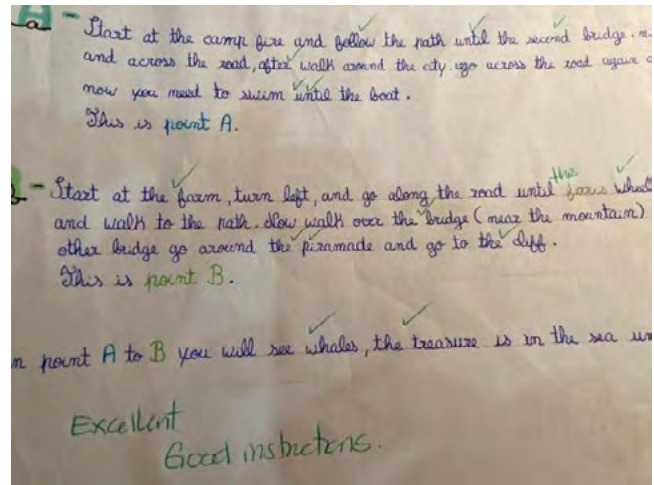 A - Start at the camp fire and follow the path until the second bridge.
and across the road, after walk around the city. go across the road again
now you need to swim until the boat.
This is point A.
- Start at the farm, turn left, and go along the road until the wheel
and walk to the path. Now walk over the bridge (near the mountain)
other bridge go around the piramade and go to the cliff.
This is point B.
point A to B you will see whales, the treasure is in the sea
Excellent
Good instructions.